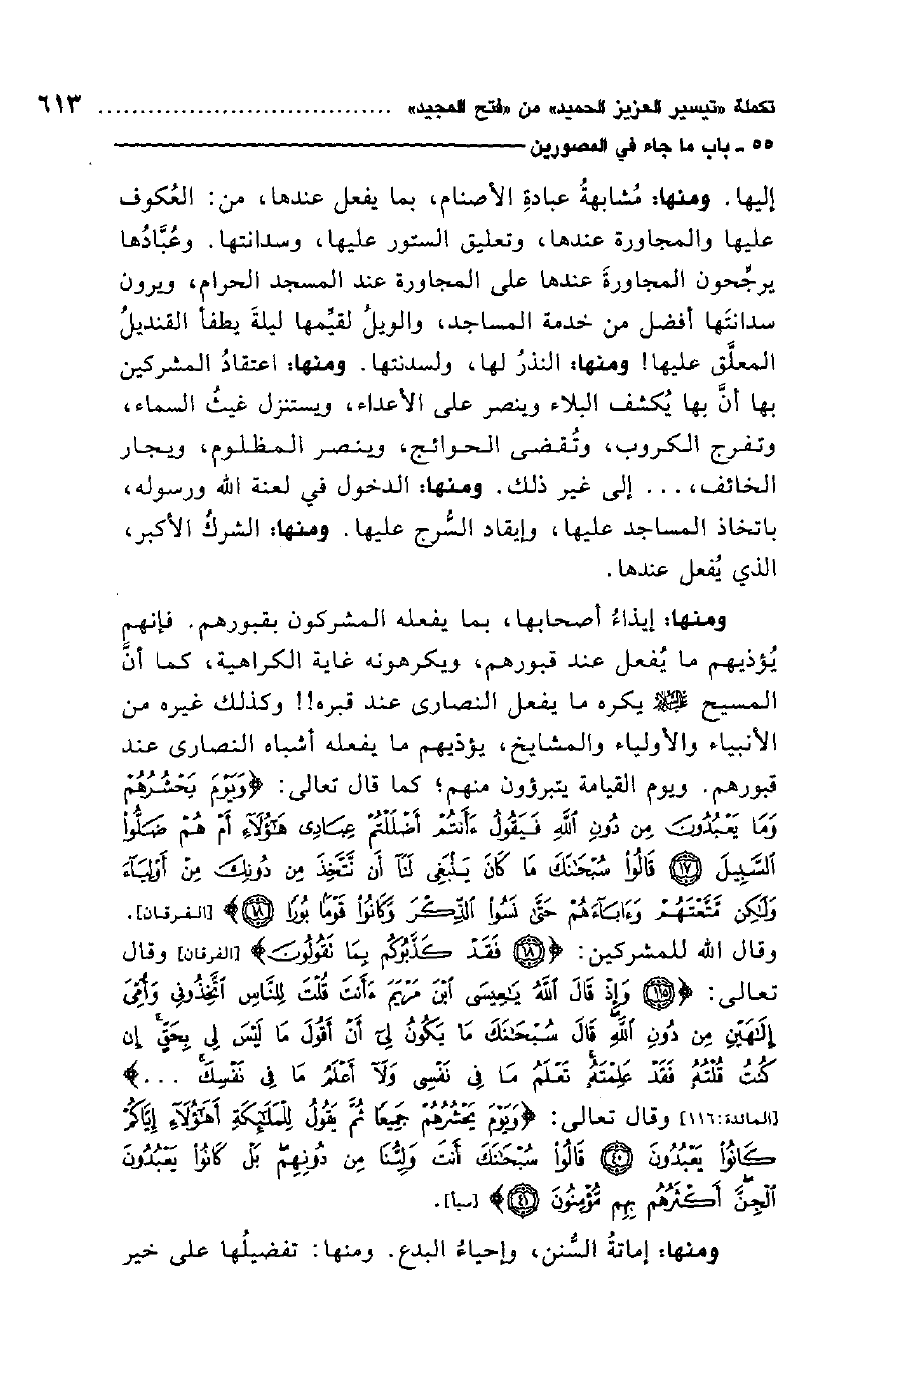 تكملة «تيسير العزيز الحميد» من «فتح المجيد» ................................ ٦١٣
٥٥ - باب ما جاء في المصورين
إليها. ومنها: مُشابهةُ عبادةِ الأصنام، بما يفعل عندها، من: العُكوف
عليها والمجاورة عندها، وتعليق الستور عليها، وسدانتها. وعُبَّادُها
يرجِّحون المجاورةَ عندها على المجاورة عند المسجد الحرام، ويرون
سدانتَها أفضل من خدمة المساجد، والويلُ لقيِّمها ليلةَ يطفأ القنديلُ
المعلَّق عليها! ومنها: النذرُ لها، ولسدنتها. ومنها: اعتقادُ المشركين
بها أنَّ بها يُكشف البلاء وينصر على الأعداء، ويستنزل غيثُ السماء،
وتفرج الكروب، وتُقضى الحوائج، وينصر المظلوم، ويجار
الخائف، ... إلى غير ذلك. ومنها: الدخول في لعنة الله ورسوله،
باتخاذ المساجد عليها، وإيقاد السُّرج عليها. ومنها: الشركُ الأكبر،
الذي يُفعل عندها.
ومنها: إيذاءُ أصحابها، بما يفعله المشركون بقبورهم. فإنهم
يُؤذيهم ما يُفعل عند قبورهم، ويكرهونه غاية الكراهية، كما أنَّ
المسيح ﷺ يكره ما يفعل النصارى عند قبره!! وكذلك غيره من
الأنبياء والأولياء والمشايخ، يؤذيهم ما يفعله أشباه النصارى عند
قبورهم. ويوم القيامة يتبرؤون منهم؛ كما قال تعالى: ﴿وَيَوْمَ يَحْشُرُهُمْ
وَمَا يَعْبُدُونَ مِن دُونِ ٱللَّهِ فَيَقُولُ ءَأَنتُمْ أَضْلَلْتُمْ عِبَادِى هَـٰٓؤُلَآءِ أَمْ هُمْ ضَلُّوا۟
ٱلسَّبِيلَ ١٧ قَالُوا۟ سُبْحَـٰنَكَ مَا كَانَ يَنۢبَغِى لَنَآ أَن نَّتَّخِذَ مِن دُونِكَ مِنْ أَوْلِيَآءَ
وَلَـٰكِن مَّتَّعْتَهُمْ وَءَابَآءَهُمْ حَتَّىٰ نَسُوا۟ ٱلذِّكْرَ وَكَانُوا۟ قَوْمًۢا بُورًا ١٨﴾ [الفرقان].
وقال الله للمشركين: ﴿١٨ فَقَدْ كَذَّبُوكُم بِمَا تَقُولُونَ﴾ [الفرقان] وقال
تعالى: ﴿١١٥ وَإِذْ قَالَ ٱللَّهُ يَـٰعِيسَى ٱبْنَ مَرْيَمَ ءَأَنتَ قُلْتَ لِلنَّاسِ ٱتَّخِذُونِى وَأُمِّىَ
إِلَـٰهَيْنِ مِن دُونِ ٱللَّهِ ۖ قَالَ سُبْحَـٰنَكَ مَا يَكُونُ لِىٓ أَنْ أَقُولَ مَا لَيْسَ لِى بِحَقٍّ ۚ إِن
كُنتُ قُلْتُهُۥ فَقَدْ عَلِمْتَهُۥ ۚ تَعْلَمُ مَا فِى نَفْسِى وَلَآ أَعْلَمُ مَا فِى نَفْسِكَ ۚ ...﴾
[المائدة:١١٦] وقال تعالى: ﴿وَيَوْمَ يَحْشُرُهُمْ جَمِيعًا ثُمَّ يَقُولُ لِلْمَلَـٰٓئِكَةِ أَهَـٰٓؤُلَآءِ إِيَّاكُمْ
كَانُوا۟ يَعْبُدُونَ ٤٠ قَالُوا۟ سُبْحَـٰنَكَ أَنتَ وَلِيُّنَا مِن دُونِهِم ۖ بَلْ كَانُوا۟ يَعْبُدُونَ
ٱلْجِنَّ ۖ أَكْثَرُهُم بِهِم مُّؤْمِنُونَ ٤١﴾ [سبأ].
ومنها: إماتةُ السُّنن، وإحياءُ البدع. ومنها: تفضيلُها على خير